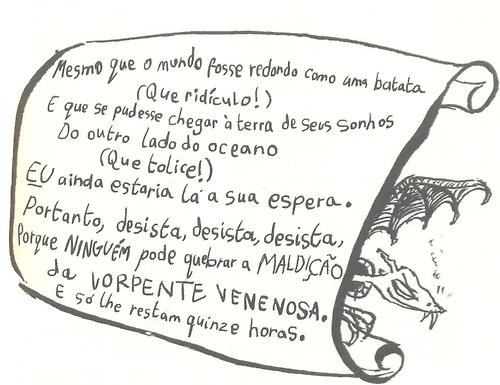 Mesmo que o mundo fosse redondo como uma batata
(Que ridículo!)
E que se pudesse chegar à terra de seus sonhos
Do outro lado do oceano
(Que tolice!)
EU ainda estaria lá a sua espera.
Portanto, desista, desista, desista,
Porque NINGUÉM pode quebrar a MALDIÇÃO
da VORPENTE VENENOSA.
E só lhe restam quinze horas.